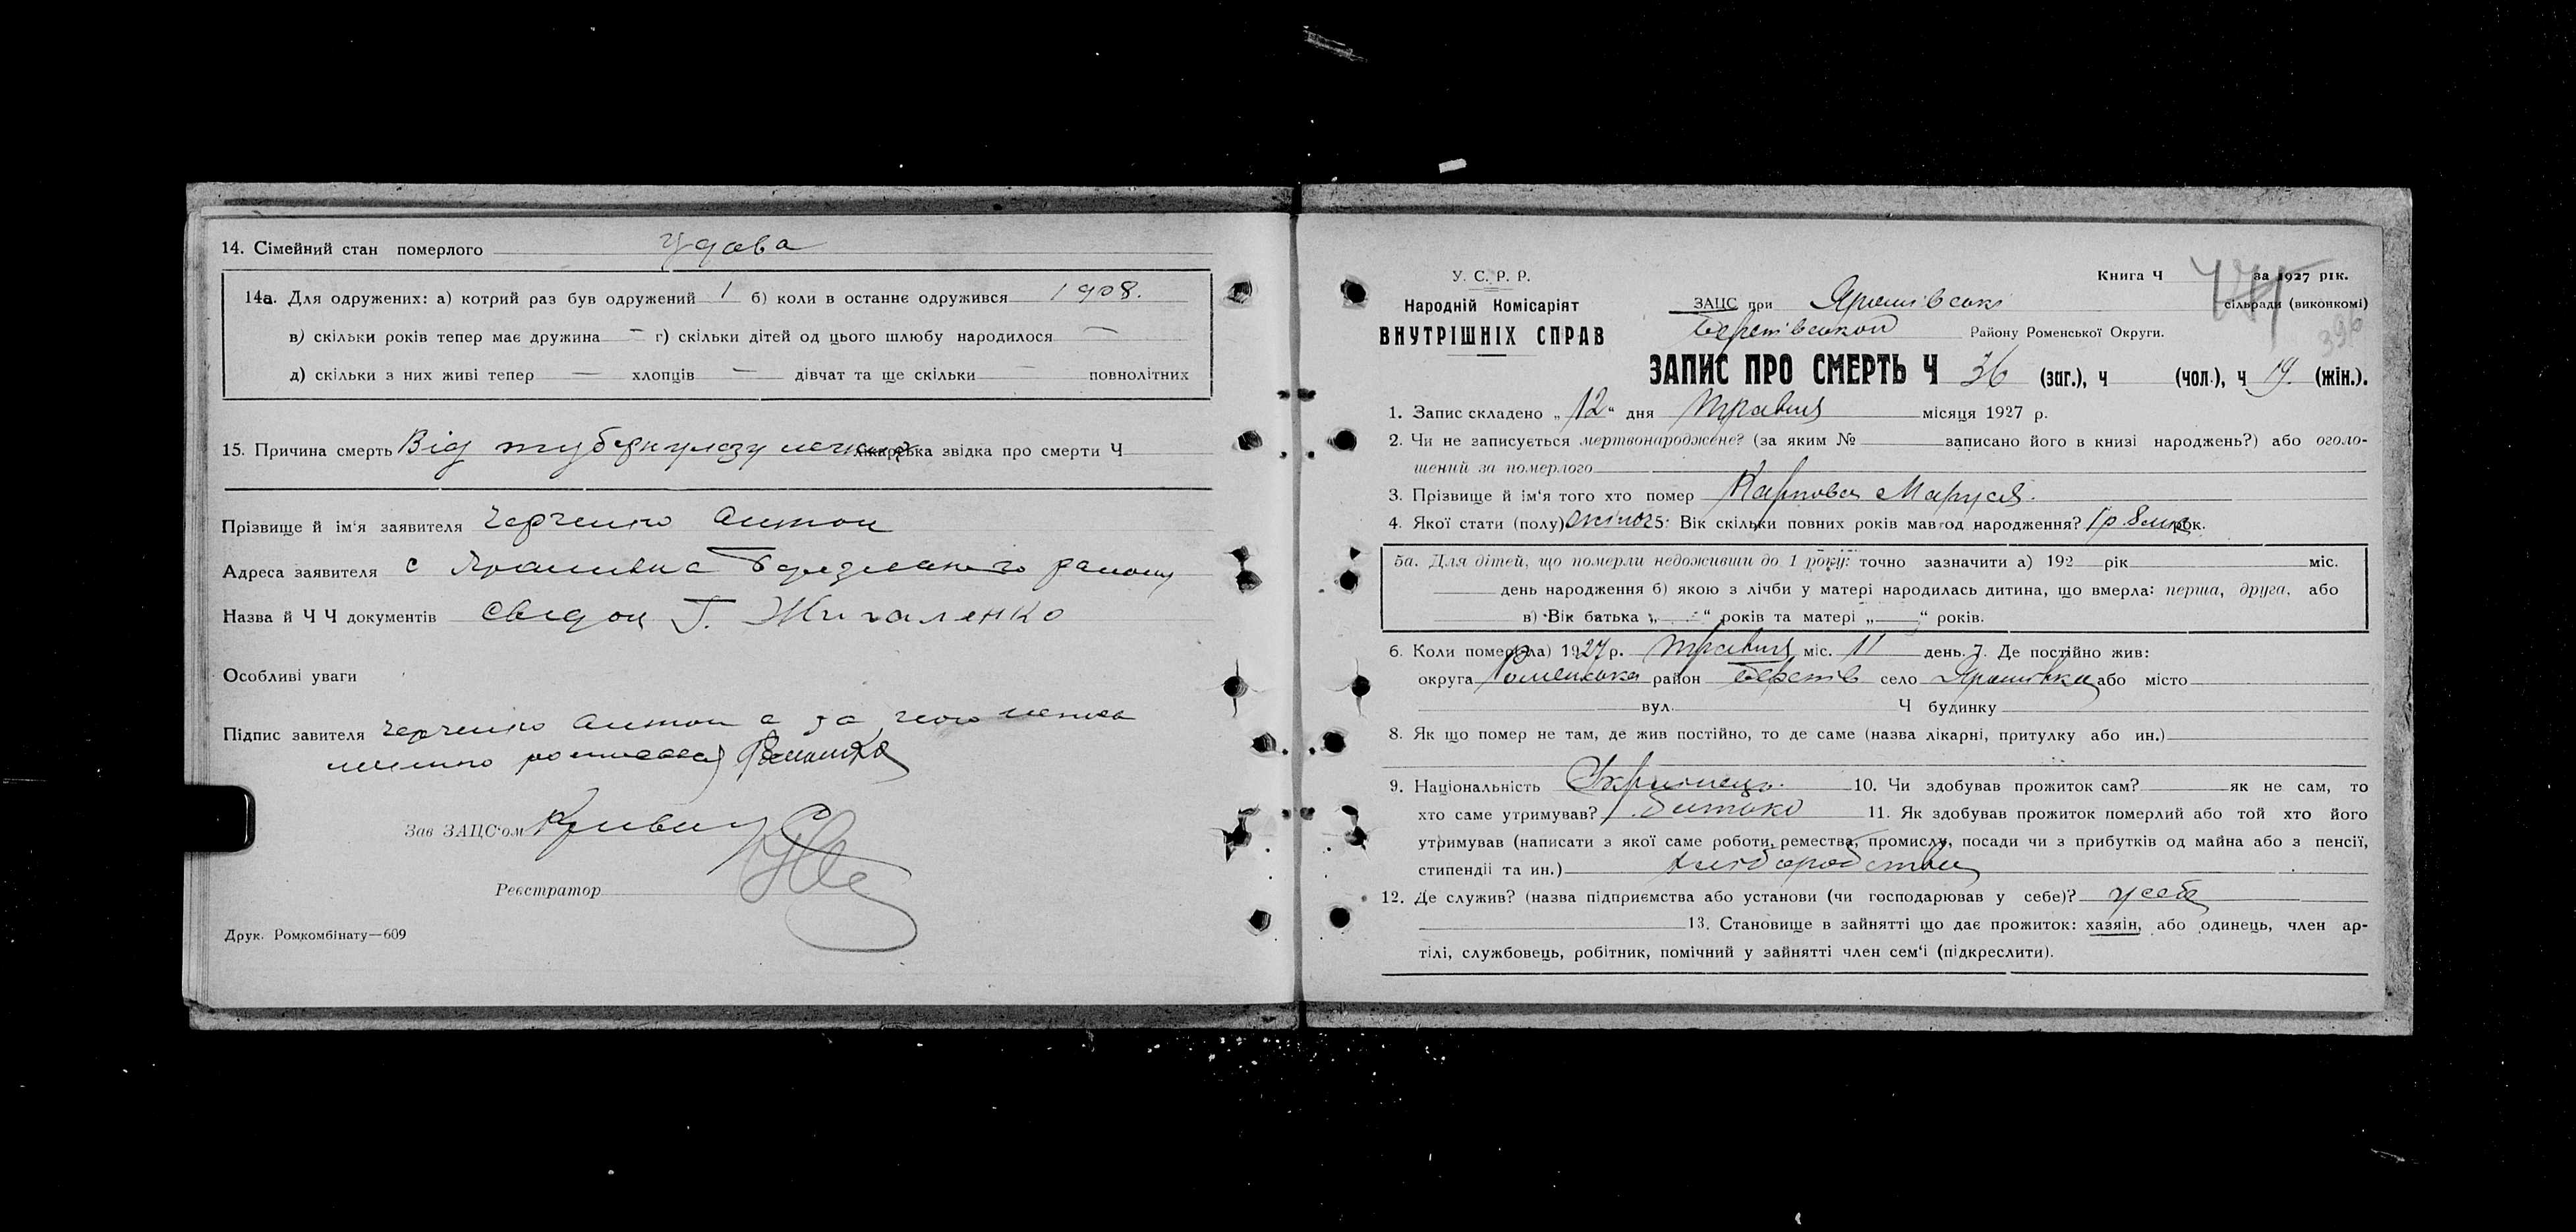 14. Сімейний стан померлого Удова
14а. Для одружених: а) котрий раз був одружений 1 б) коли в останнє одружився 1908.
в) скільки років тепер має дружина — г) скільки дітей од цього шлюбу народилося —
д) скільки з них живі тепер — хлопців — дівчат та ще скільки — повнолітних
15. Причина смерть Від туберкульозу легких лікарська звідка про смерти Ч
Прізвище й ім'я заявителя Черченко Антон
Адреса заявителя с Ярошивка району
Назва й Ч Ч документів свідоц Г. Жигаленко
Особливі уваги
Підпис завителя Черченко Антон а за його
росписався
Зав ЗАЦС'ом
Реєстратор
Друк. Ромкомбінату—609
У. С. Р. Р.
Народній Комісаріят
ВНУТРІШНІХ СПРАВ
Книга Ч за 1927 рік.
ЗАЦС при Ярошівські сільради (виконкомі)
Району Роменської Округи.
396
ЗАПИС ПРО СМЕРТЬ Ч 36 (заг.), ч (чол.), ч 19. (жін.).
1. Запис складено „12“ дня Травня місяця 1927 р.
2. Чи не записується мертвонароджене? (за яким № записано його в книзі народжень?) або оголо-
шений за померлого
3. Прізвище й ім'я того хто помер Карпова Маруся.
4. Якої стати (полу) жіноч 5. Вік скільки повних років мав од народження? 1 р 8 міс рок.
5а. Для дітей, що померли недоживши до 1 року: точно зазначити а) 192 рік міс.
день народження б) якою з лічби у матері народилась дитина, що вмерла: перша, друга, або
в) Вік батька „ “ років та матері „ “ років.
6. Коли помер(ла) 1927 р. Травня міс. 11 день. 7. Де постійно жив:
округа Роменська район Берестів село Ярошівка або місто
вул. Ч будинку
8. Як що помер не там, де жив постійно, то де саме (назва лікарні, притулку або ин.)
9. Національність Українець. 10. Чи здобував прожиток сам? як не сам, то
хто саме утримував? Батько 11. Як здобував прожиток померлий або той хто його
утримував (написати з якої саме роботи, ремества, промислу, посади чи з прибутків од майна або з пенсії,
стипендії та ин.) хліборобства
12. Де служив? (назва підприємства або установи (чи господарював у себе)? у себе
13. Становище в зайнятті що дає прожиток: хазяїн, або одинець, член ар-
тілі, службовець, робітник, помічний у зайнятті член сем'і (підкреслити).